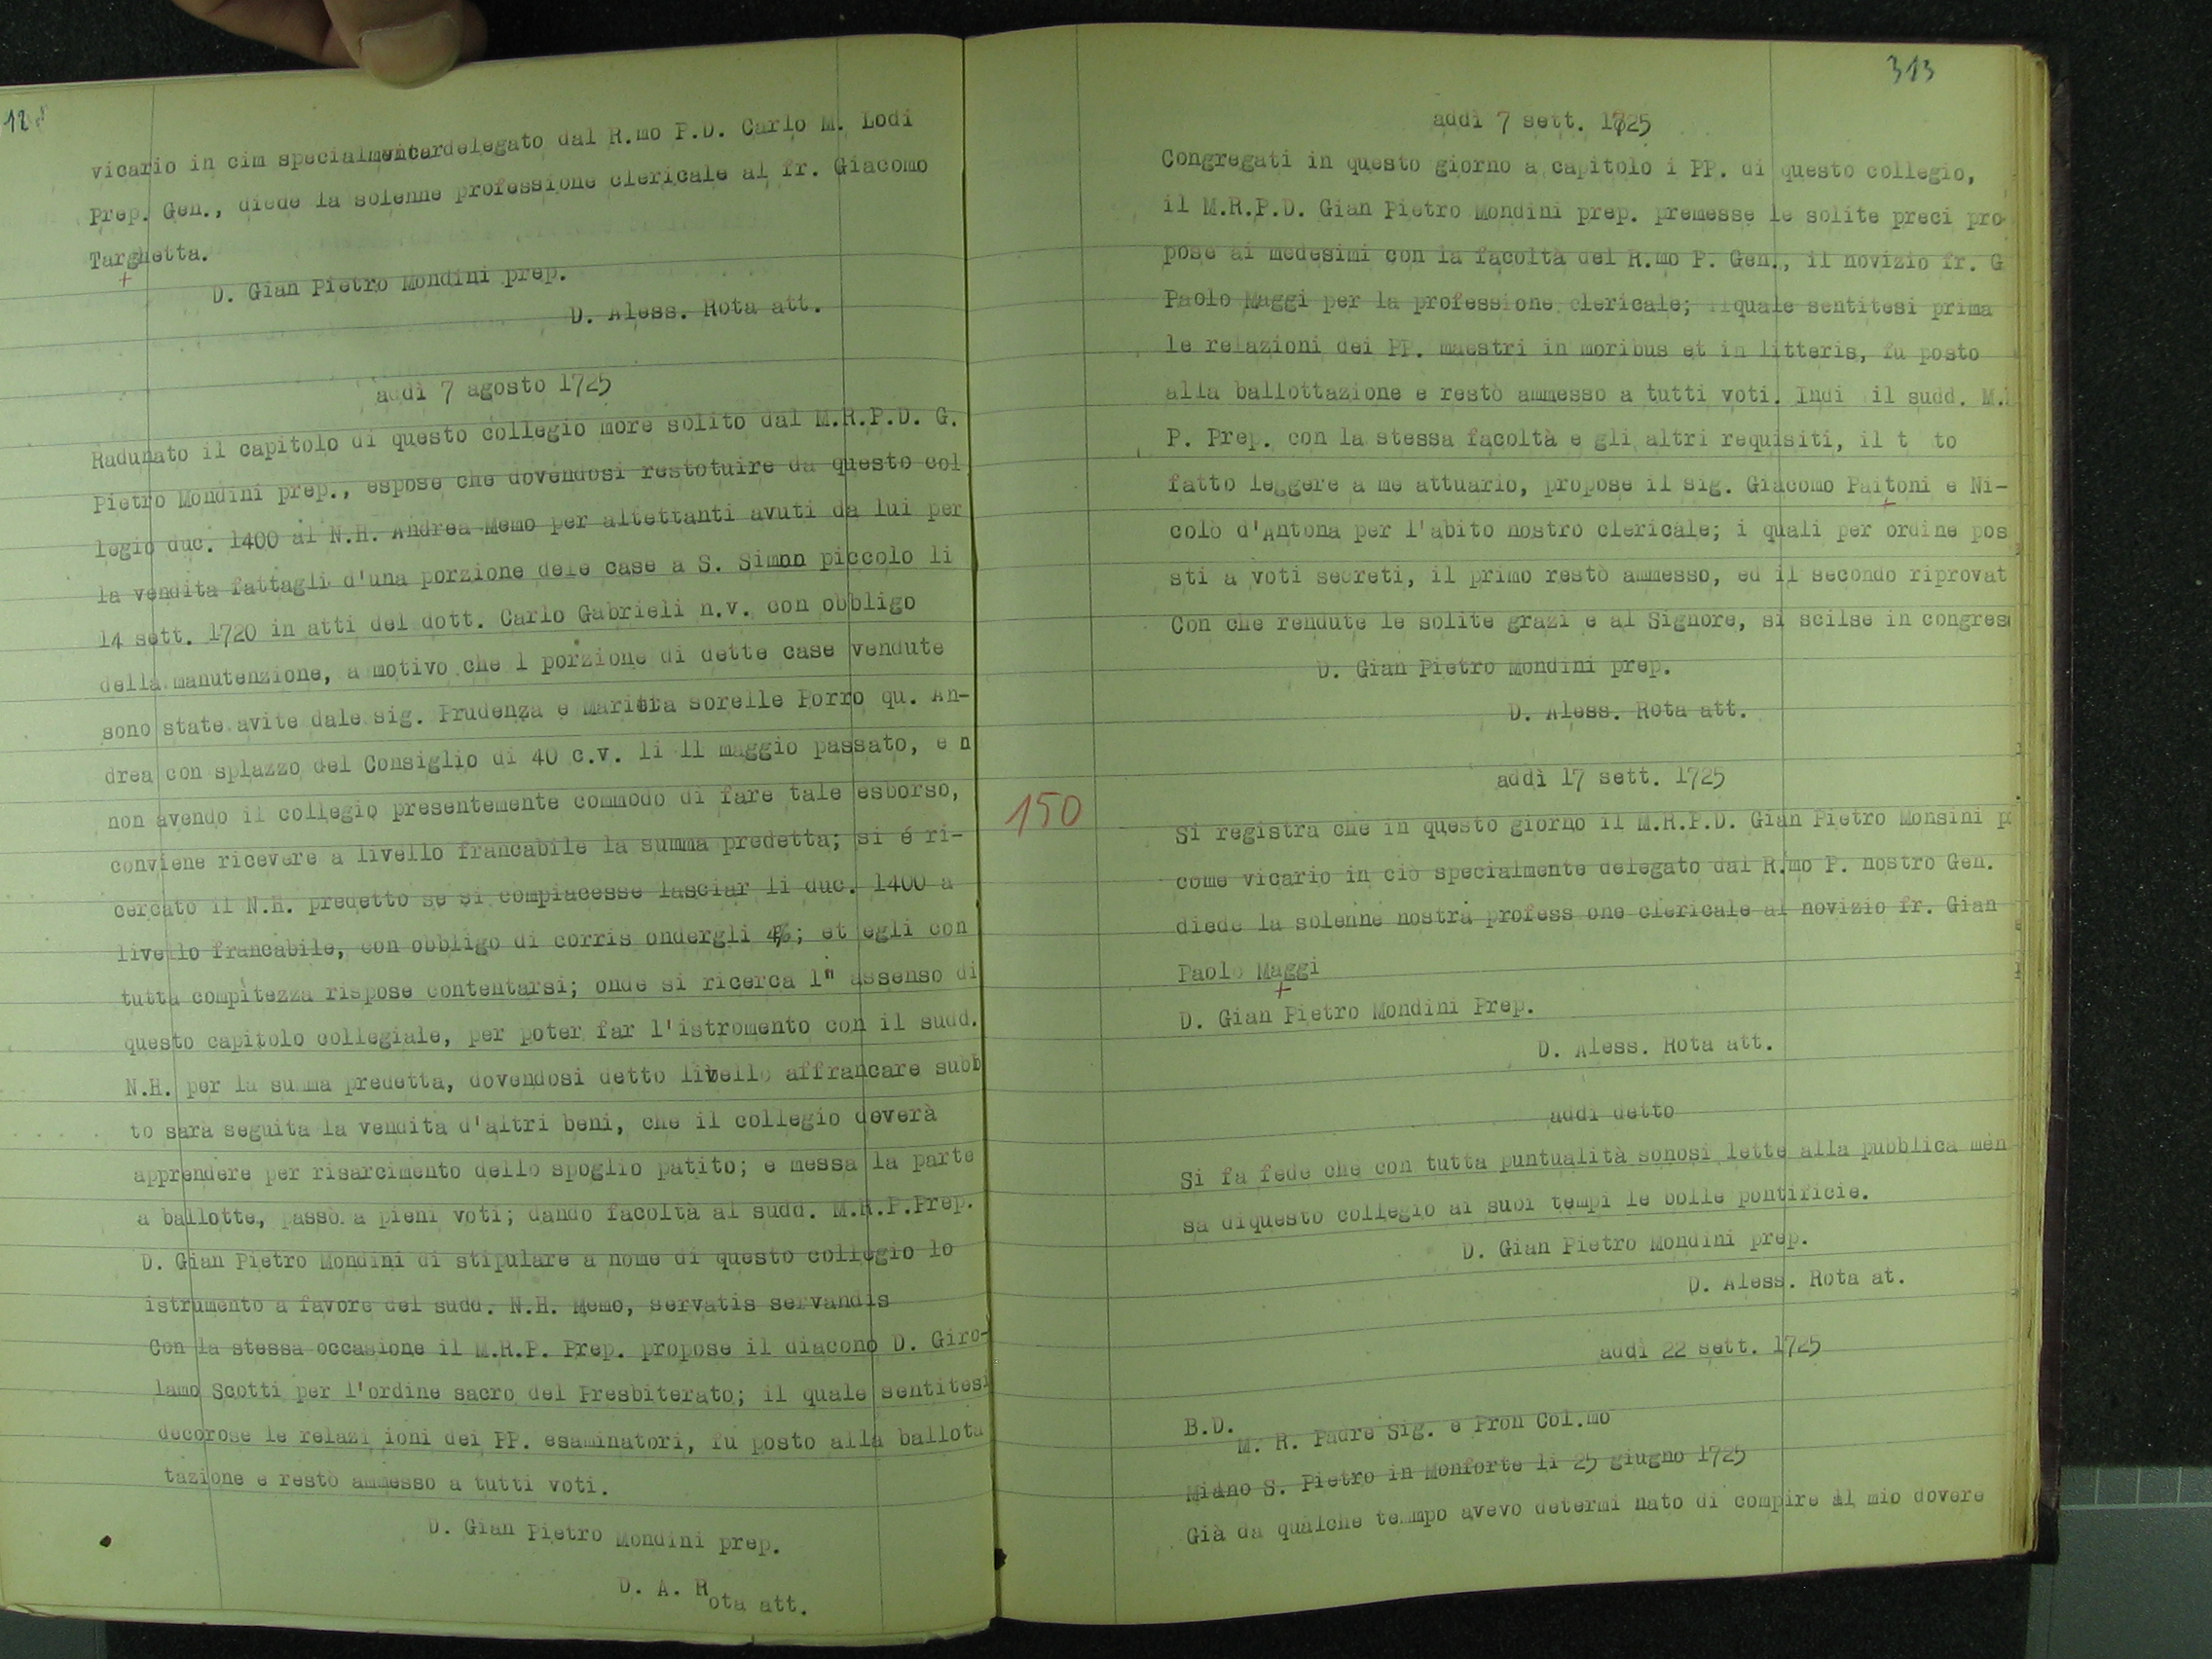 12
vicario in cim specialmente delegato dal R.mo P.D. Carlo M. Lodi
Prep. Gen., diede la solenne professione clericale al fr. Giacomo
Targhetta.
+
D. Gian Pietro Mondini prep.
D. Aless. Rota att.
addì 7 agosto 1725
Radunato il capitolo di questo collegio more solito dal M.R.P.D. G.
Pietro Mondini prep., espose che dovendosi restotuire da questo col
legio duc. 1400 al N.H. Andrea Memo per altettanti avuti da lui per
la vendita fattagli d'una porzione dele case a S. Simon piccolo li
14 sett. 1720 in atti del dott. Carlo Gabrieli n.v. con obbligo
della manutenzione, a motivo che l porzione di dette case vendute
sono state avite dale sig. Prudenza e Marietta sorelle Porro qu. An-
drea con splazzo del Consiglio di 40 c.v. li 11 maggio passato, e n
non avendo il collegio presentemente commodo di fare tale esborso,
conviene ricevere a livello francabile la summa predetta; si é ri-
cercato il N.H. predetto se si compiacesse lasciar li duc. 1400 a
livello francabile, con obbligo di corris ondergli 4%; et egli con
tutta compitezza rispose contentarsi; onde si ricerca l" assenso di
questo capitolo collegiale, per poter far l'istromento con il sudd.
N.H. per la summa predetta, dovendosi detto livello affrancare subb
to sara seguita la vendita d'altri beni, che il collegio doverà
apprendere per risarcimento dello spoglio patito; e messa la parte
a ballotte, passò a pieni voti; dando facoltà al sudd. M.R.P.Prep.
D. Gian Pietro Mondini di stipulare a nome di questo collegio lo
istrumento a favore del sudd. N.H. Memo, servatis servandis
Con la stessa occasione il M.R.P. Prep. propose il diacono D. Giro-
lamo Scotti per l'ordine sacro del Presbiterato; il quale sentitesi
decorose le relazi ioni dei PP. esaminatori, fu posto alla ballota
tazione e restò ammesso a tutti voti.
D. Gian Pietro Mondini prep.
D. A. Rota att.
313
addì 7 sett. 1725
Congregati in questo giorno a capitolo i PP. di questo collegio,
il M.R.P.D. Gian Pietro Mondini prep. premesse le solite preci pro
pose ai medesimi con la facoltà del R.mo P. Gen., il novizio fr. G
Paolo Maggi per la professione clericale; il quale sentitesi prima
le relazioni dei PP. maestri in moribus et in litteris, fu posto
alla ballottazione e restò ammesso a tutti voti. Indi il sudd. M.
P. Prep. con la stessa facoltà e gli altri requisiti, il t to
fatto leggere a me attuario, propose il sig. Giacomo Paitoni e Ni-
+
colò d'Antona per l'abito nostro clericale; i quali per ordine pos
sti a voti secreti, il primo restò ammesso, ed il secondo riprovat
Con che rendute le solite grazi e al Signore, si scilse in congres
D. Gian Pietro Mondini prep.
D. Aless. Rota att.
addì 17 sett. 1725
150
Si registra che in questo giorno il M.R.P.D. Gian Pietro Monsini p
come vicario in ciò specialmente delegato dal R.mo P. nostro Gen.
diede la solenne nostra profess one clericale al novizio fr. Gian
Paolo Maggi
+
D. Gian Pietro Mondini Prep.
D. Aless. Rota att.
addì detto
Si fa fede che con tutta puntualità sonosi lette alla pubblica men
sa diquesto collegio ai suoi tempi le bolle pontificie.
D. Gian Pietro Mondini prep.
D. Aless. Rota at.
addì 22 sett. 1725
B.D.
M. R. Padre Sig. e Pron Col.mo
Miano S. Pietro in Monforte li 25 giugno 1725
Già da qualche temmpo avevo determi nato di compire il mio dovere